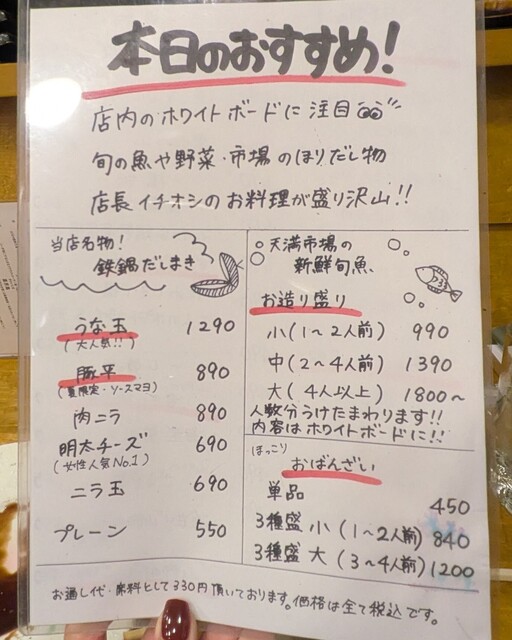 本日のおすすめ!
店内のホワイトボードに注目
旬の魚や野菜・市場のほりだし物
店長イチオシのお料理が盛り沢山!!
当店名物!
鉄鍋だしまき
うな玉 1290
(大人気!!)
豚平 890
(夏限定・ソースマヨ)
肉ニラ 890
明太チーズ 690
(女性人気No.1)
ニラ玉 690
プレーン 550
天満市場の
新鮮旬魚、
お造り盛り
小(1〜2人前) 990
中(2〜4人前) 1390
大(4人以上) 1800〜
人数分うけたまわります!!
内容はホワイトボードに!!
ほっこり
おばんざい
単品 450
3種盛 小(1〜2人前) 840
3種盛 大(3〜4人前) 1200
お通し代・席料として330円頂いております。価格は全て税込です。